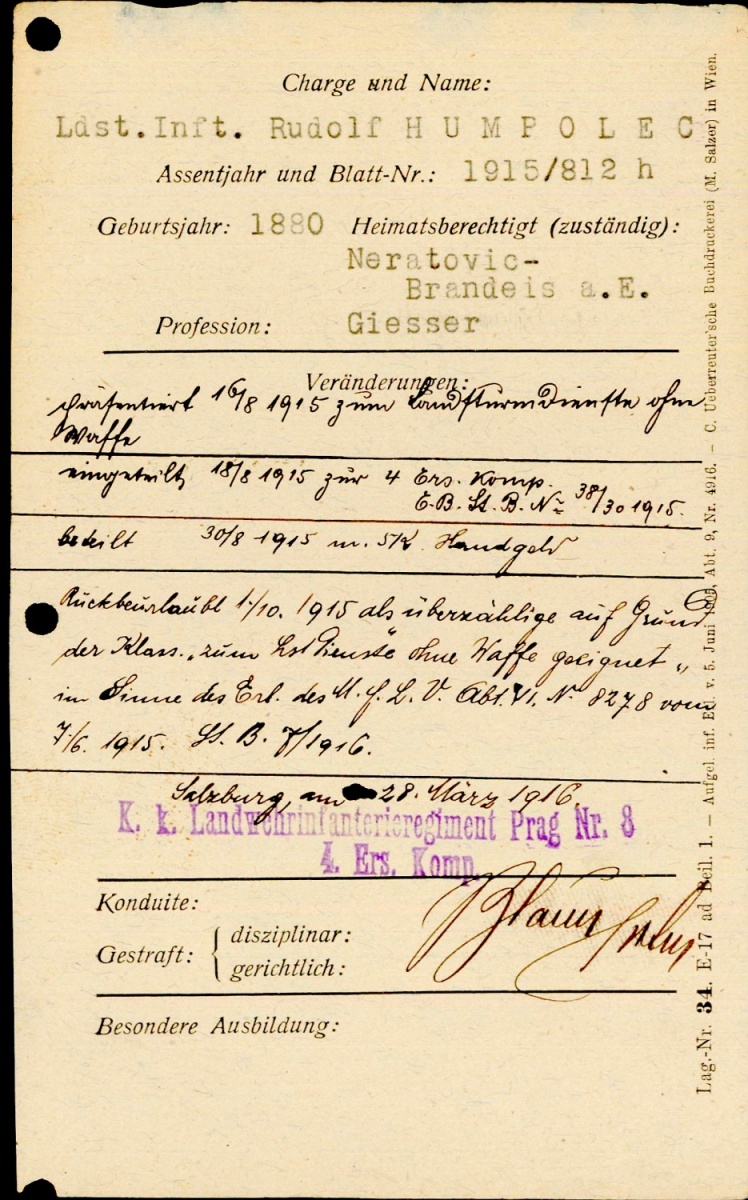 Charge und Name:
Ldst.Inft. Rudolf H U M P O L E C
Assentjahr und Blatt-Nr.: 1915/812 h
Geburtsjahr: 1880 Heimatsberechtigt (zuständig):
Neratovic-
Brandeis a.E.
Profession: Giesser
Veränderungen:
präsentiert 16/8 1915 zum Landsturmdienste ohne
Waffe
eingeteilt 18/8 1915 zur 4 Ers. Komp.
E.B. St. B. No 38/30 1915.
beteilt 30/8 1915 m. 5 K Handgeld
Rückbeurlaubt 1/10. 1915 als überzählige auf Grund
der Klass. „zum Lstdienste ohne Waffe geeignet"
im Sinne des Erl. des M. f. L. V. Abt. VI. No 8278 vom
7/6. 1915. St. B. 7/1916.
Salzburg, am 28. März 1916.
K. k. Landwehrinfanterieregiment Prag Nr. 8
4. Ers. Komp.
Konduite:
Gestraft: { disziplinar:
gerichtlich:
Besondere Ausbildung:
Lag.-Nr. 34. E-17 ad Beil. 1. — Aufgel. inf. Erl. v. 5. Juni Abt. 9, Nr. 4916. — C. Ueberreuter'sche Buchdruckerei (M. Salzer) in Wien.